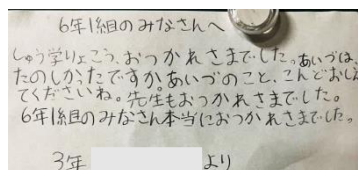 6年1組のみなさんへ
しゅう学りょこう、おつかれさまでした。あいづは、
たのしかったですか。あいづのこと、こんどおしえ
てくださいね。先生もおつかれさまでした。
6年1組のみなさん本当におつかれさまでした。
3年 より